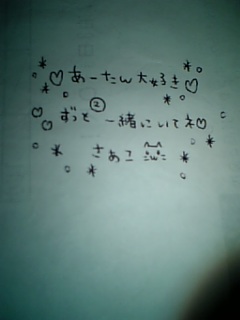 ♡あーたん大好き♡
ずっと②一緒にいてネ♡
さあこ